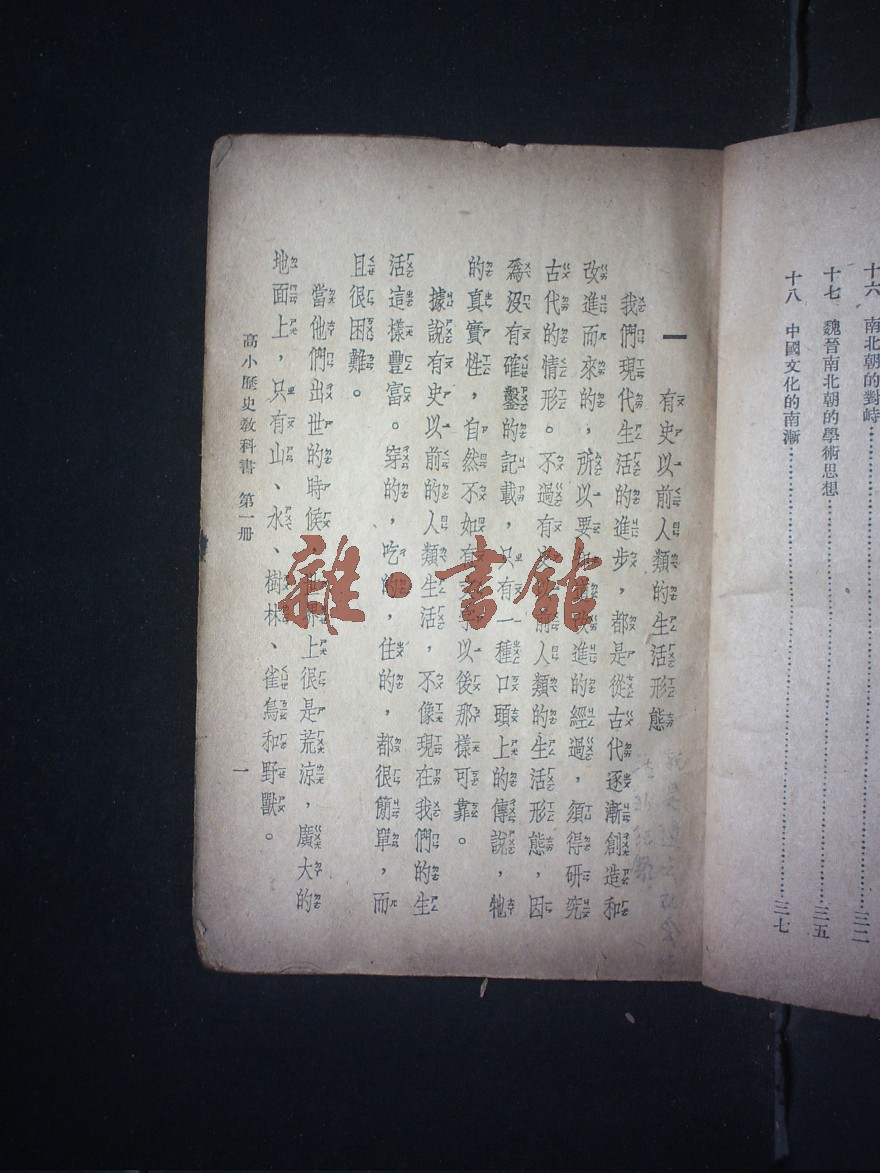 十六　南北朝的對峙……………三二
十七　魏晉南北朝的學術思想……………三五
十八　中國文化的南漸……………三七
一　有史以前人類的生活形態
我們現代生活的進步，都是從古代逐漸創造和
改進而來的，所以要知道改進的經過，須得研究
古代的情形。不過有史以前人類的生活形態，因
爲沒有確鑿的記載，只有一種口頭上的傳說，牠
的真實性，自然不如有以後那樣可靠。
據說有史以前的人類生活，不像現在我們的生
活這樣豐富。穿的，吃的，住的，都很簡單，而
且很困難。
當他們出世的時候，世界上很是荒涼，廣大的
地面上，只有山、水、樹林、雀鳥和野獸。
高小歷史教科書　第一册
一
雜·書館